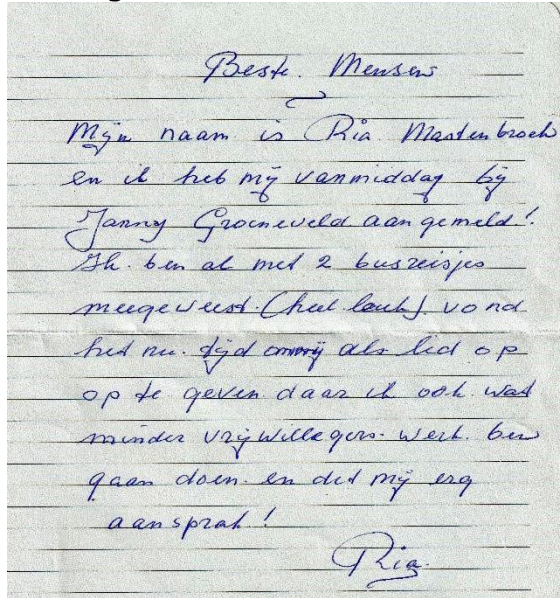 Beste Mensen
Mijn naam is Ria Mastenbroek
en ik heb mij vanmiddag bij
Janny Groeneveld aangemeld!
Ik ben al met 2 busreisjes
meegeweest (heel leuk) vond
het nu tijd om mij als lid op
op te geven daar ik ook wat
minder vrijwilligers werk ben
gaan doen en dit mij erg
aansprak!
Ria